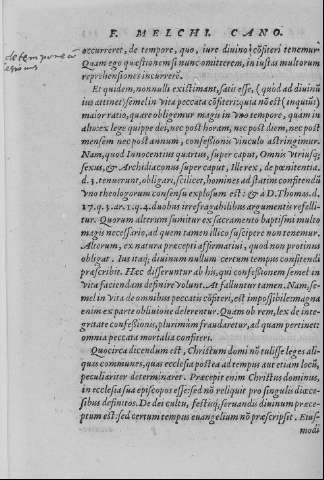 F. MELCHI. CANO.
de tempore cō
occurreret, de tempore, quo, iure diuino cōfiteri tenemur
Quam ego quæstionem si nunc omitterem, in iustas multorum
reprehensiones incurrerē.
Et quidem, nonnulli existimant, satis esse, (quòd ad diuinū
ius attinet) semel in vita peccata cōfiteri: quia nō est (inquiūt)
maior ratio, quare obligemur magis in vno tempore, quam in
alio: ex lege quippe dei, nec post horam, nec post diem, nec post
mensem nec post annum, confessionis vinculo astringimur.
Nam, quod Innocentius quartus, super caput, Omnis vtriusq;
sexus, & Archidiaconus super caput, Ille rex, de pœnitentia.
d.3. tenuerunt, obligari, scilicet, homines ad statim confitendū
vno theologorum consensu explosum est: & à D. Thoma. d.
17. q. 3. ar. 1. q. 4. duobus irrefragabilibus argumentis refelli-
tur. Quorum alterum sumitur ex sacramento baptismi multo
magis necessario, ad quem tamen illico suscipere non tenemur.
Alterum, ex natura præcepti affirmatiui, quod non protinus
obligat. Ius itaq; diuinum nullum certum tempus confitendi
præscribit. Hæc disseruntur ab his, qui confessionem semel in
vita faciendam definire volunt. At falluntur tamen. Nam, se-
mel in vita de omnibus peccatis cōfiteri, est impossibile: magna
enim ex parte obliuione delerentur. Quam ob rem, lex de inte-
gritate confessionis, plurimùm fraudaretur, ad quam pertinet:
omnia peccata mortalia confiteri.
Quocirca dicendum est, Christum dominō tulisse leges ali-
quas communes, quas ecclesia postea ad tempus aut etiam locū,
peculiariter determinaret. Præcepit enim Christus dominus,
in ecclesia sua episcopos esse: sed nō reliquit pro singulis diœce-
sibus definitos. De dei cultu, festisq; seruandis diuinum præce-
ptum est: sed certum tempus euangelium nō præscripsit. Eius-
modi